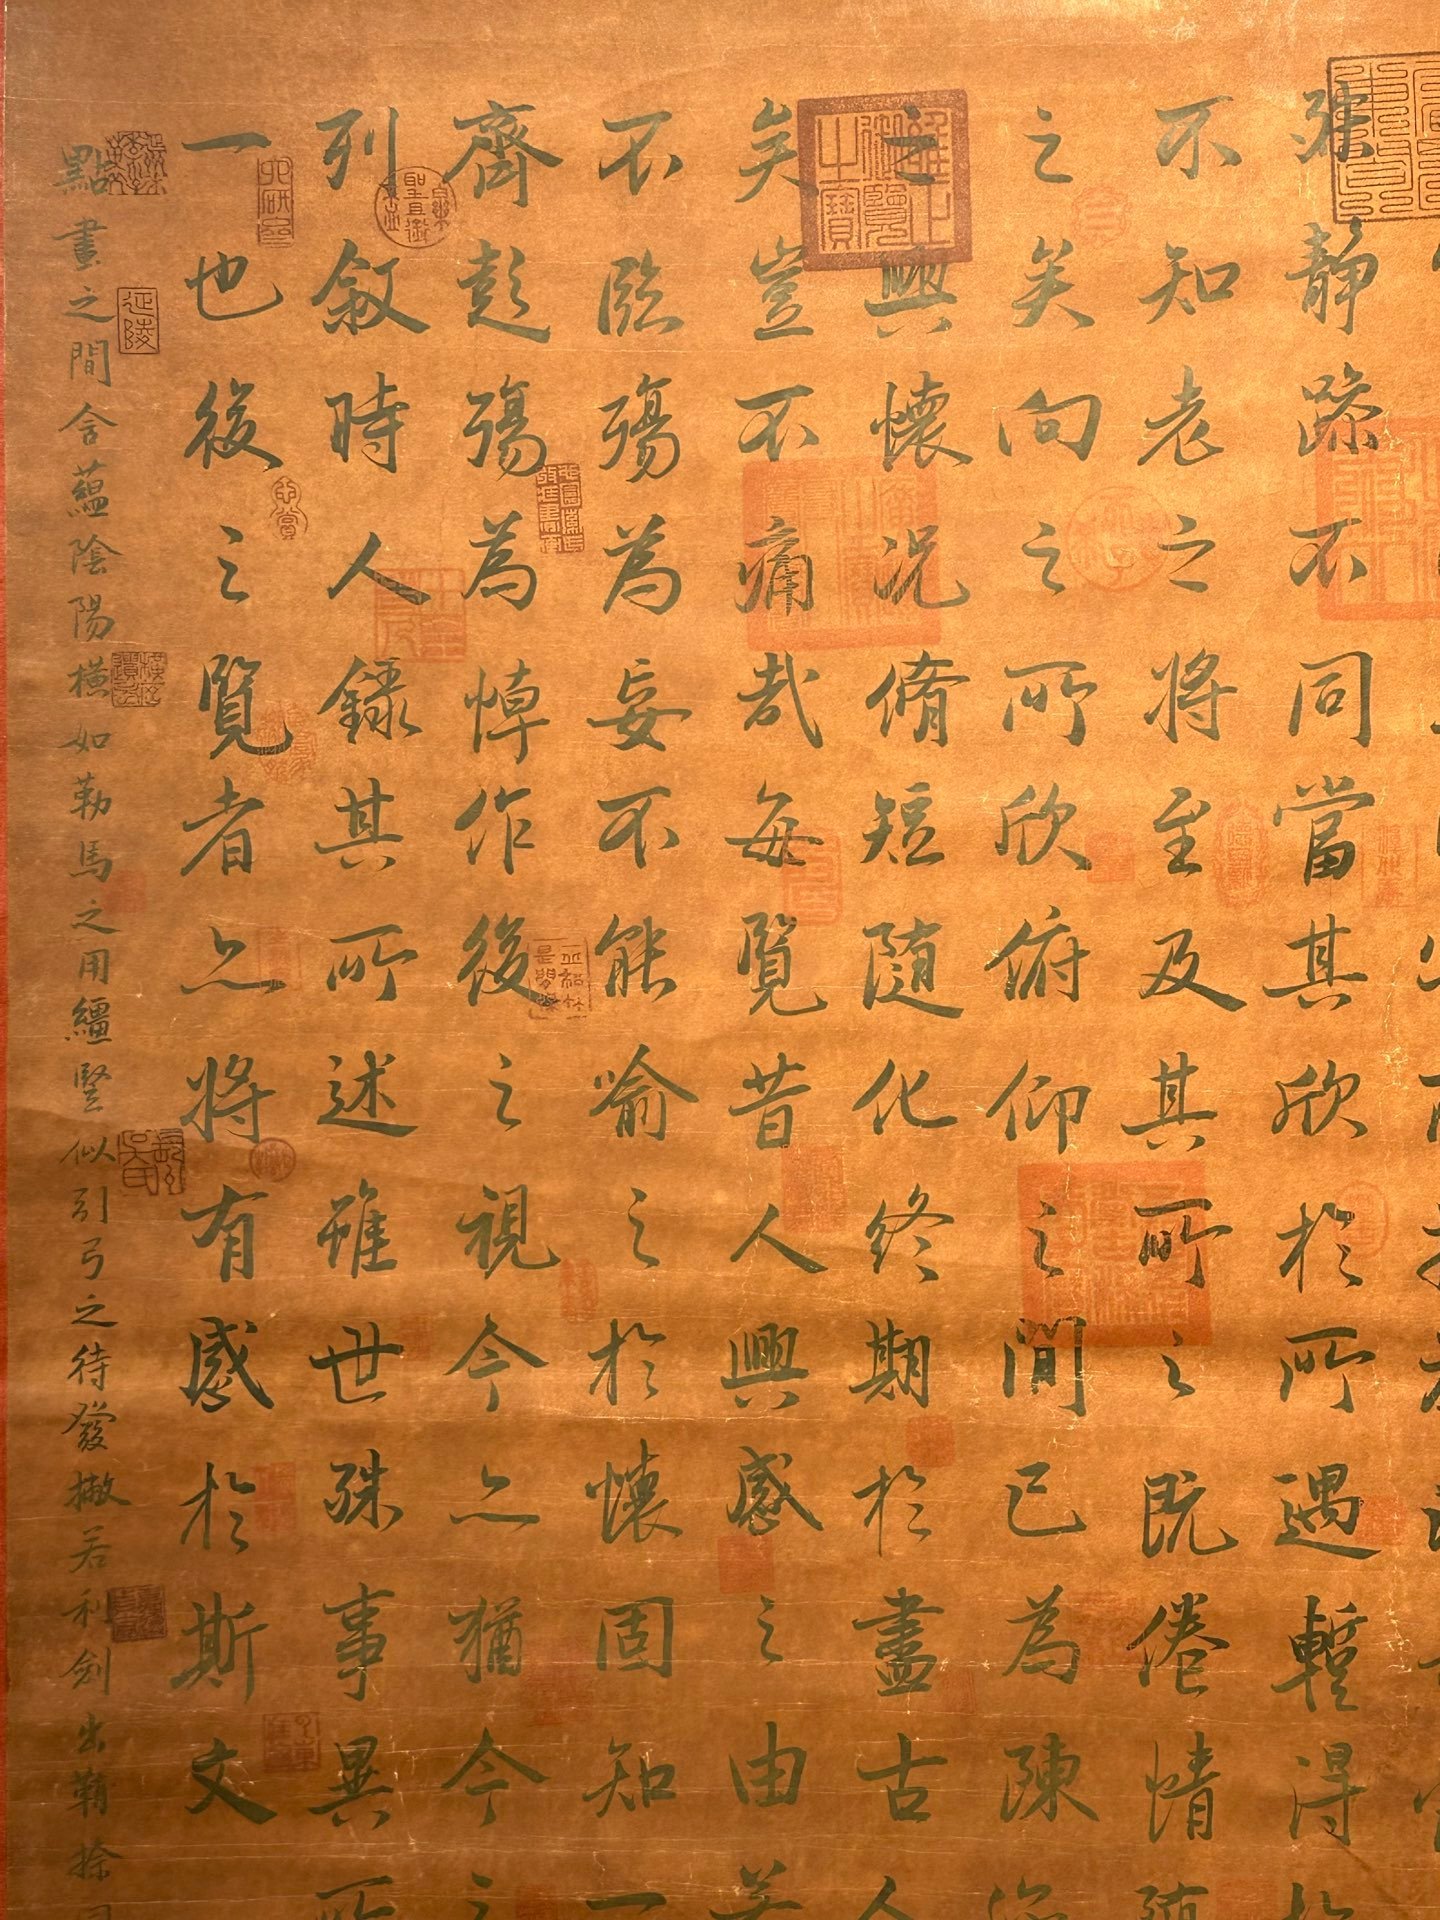 殊静踈不同當其欣於所遇蹔得於
不知老之将至及其所之既倦情随
之矣向之所欣俯仰之間已為陳
之興懷况脩短随化終期於盡古人
矣豈不痛哉每覽昔人興感之由若
不臨殤為妄不能喻之於懷固知一
齊彭殤為悼作後之視今亦猶今之
列叙時人録其所述雖世殊事異所
一也後之覽者亦将有感於斯文
點畫之間含蘊陰陽橫如勒馬之用繮豎似引弓之待發撇若利劍出鞘捺
延陵